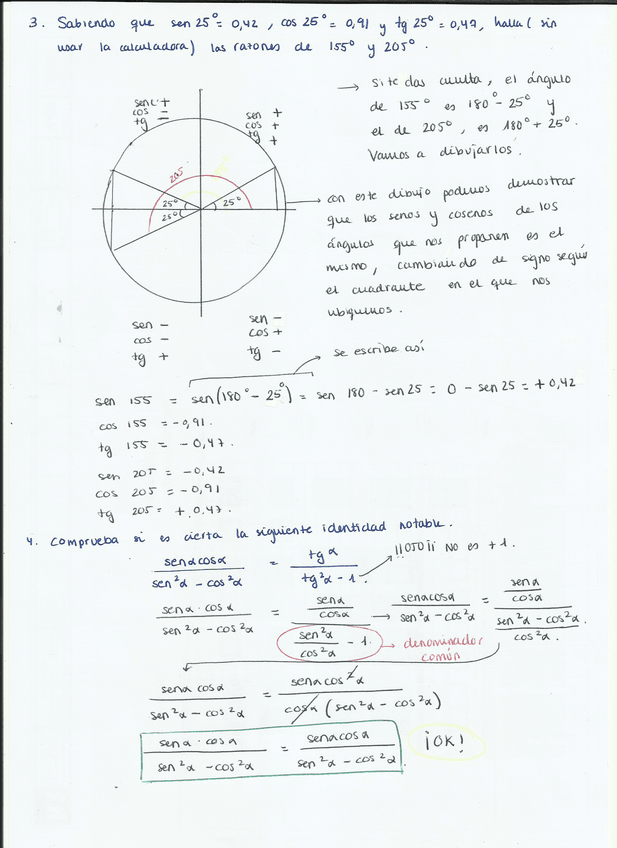 3. Sabiendo que sen 25° = 0,42 , cos 25° = 0,91 y tg 25° = 0,47, halla ( sin
usar la calculadora) las razones de 155° y 205° .
→ Si te das cuenta, el ángulo
de 155° es 180° - 25° y
el de 205° , es 180° + 25°.
Vamos a dibujarlos.
sen +
cos -
tg -
sen +
cos +
tg +
205
25°
25°
25°
→ con este dibujo podemos demostrar
que los senos y cosenos de los
ángulos que nos proponen es el
mismo, cambiando de signo según
el cuadrante en el que nos
ubiquemos.
sen -
cos -
tg +
sen -
cos +
tg -
→ se escribe así
sen 155 = sen(180° - 25°) = sen 180 - sen 25 = 0 - sen 25 = + 0,42
cos 155 = - 0,91.
tg 155 = - 0,47.
sen 205 = - 0,42
cos 205 = - 0,91
tg 205 = + 0,47.
4. Comprueba si es cierta la siguiente identidad notable.
senα cosα / sen²α - cos²α = tg α / tg²α - 1. → ¡¡OJO!! No es + 1.
senα · cosα / sen²α - cos²α = senα/cosα / sen²α/cos²α - 1. → senα cosα / sen²α - cos²α = senα/cosα / sen²α - cos²α/cos²α.
→ denominador
común
senα cosα / sen²α - cos²α = senα cos²α / cosα (sen²α - cos²α)
senα · cosα / sen²α - cos²α = senα cosα / sen²α - cos²α.
¡OK!